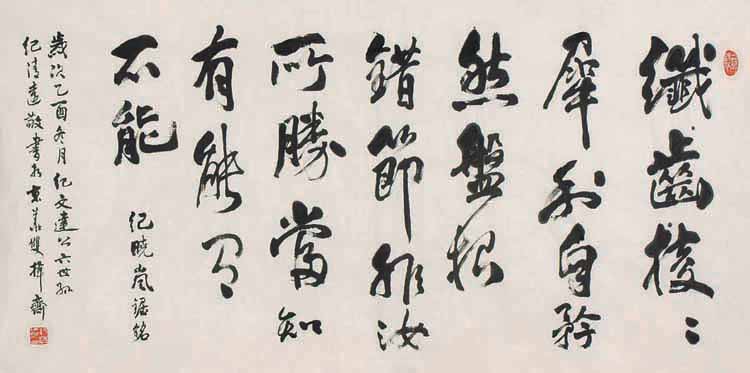 纖齒棱〻
犀利自矜
然盤根
錯節非汝
所勝當知
有能有
不能
紀曉嵐鋸銘
歲次乙酉冬月紀文達公六世孫
紀清遠敬書於京華雙槐齋